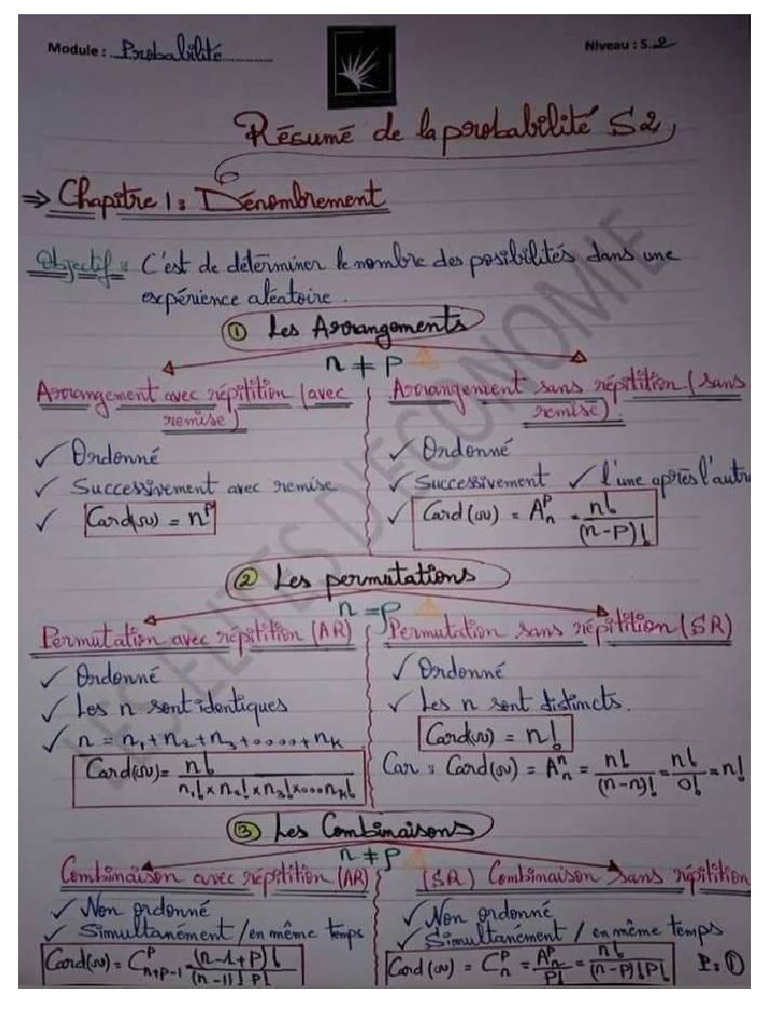 Module : Probabilité
Niveau : S.2
Résumé de la probabilité S2
⇒ Chapitre 1 : Dénombrement
Objectif : C'est de déterminer le nombre des posibilités dans une
expérience aléatoire.
① Les Arrangements
n ≠ p
Arrangement avec répitition (avec
remise)
✓ Ordonné
✓ Successivement avec remise
✓ Card(ω) = n^p
Arrangement sans répitition (sans
remise).
✓ Ordonné
✓ Successivement ✓ l'une après l'autre
✓ Card(ω) = A_n^p = n!/(n-p)!
② Les permutations
n = p
Permutation avec répitition (AR)
✓ Ordonné
✓ Les n sont identiques
✓ n = n₁+n₂+n₃+....+n_k
Card(ω) = n!/(n₁! × n₂! × n₃! ×...n_k!)
Permutation sans répitition (SR)
✓ Ordonné
✓ Les n sont distincts.
Card(ω) = n!
Car : Card(ω) = A_n^n = n!/(n-n)! = n!/0! = n!
③ Les Combinaisons
n ≠ p
Combinaison avec répitition (AR)
✓ Non ordonné
✓ Simultanément / en même temps
Card(ω) = C_{n+p-1}^p = (n-1+p)!/(n-1)! p!
(SR) Combinaison sans répitition
✓ Non ordonné
✓ Simultanément / en même temps
Card(ω) = C_n^p = A_n^p/p! = n!/(n-p)!p!
P: ①